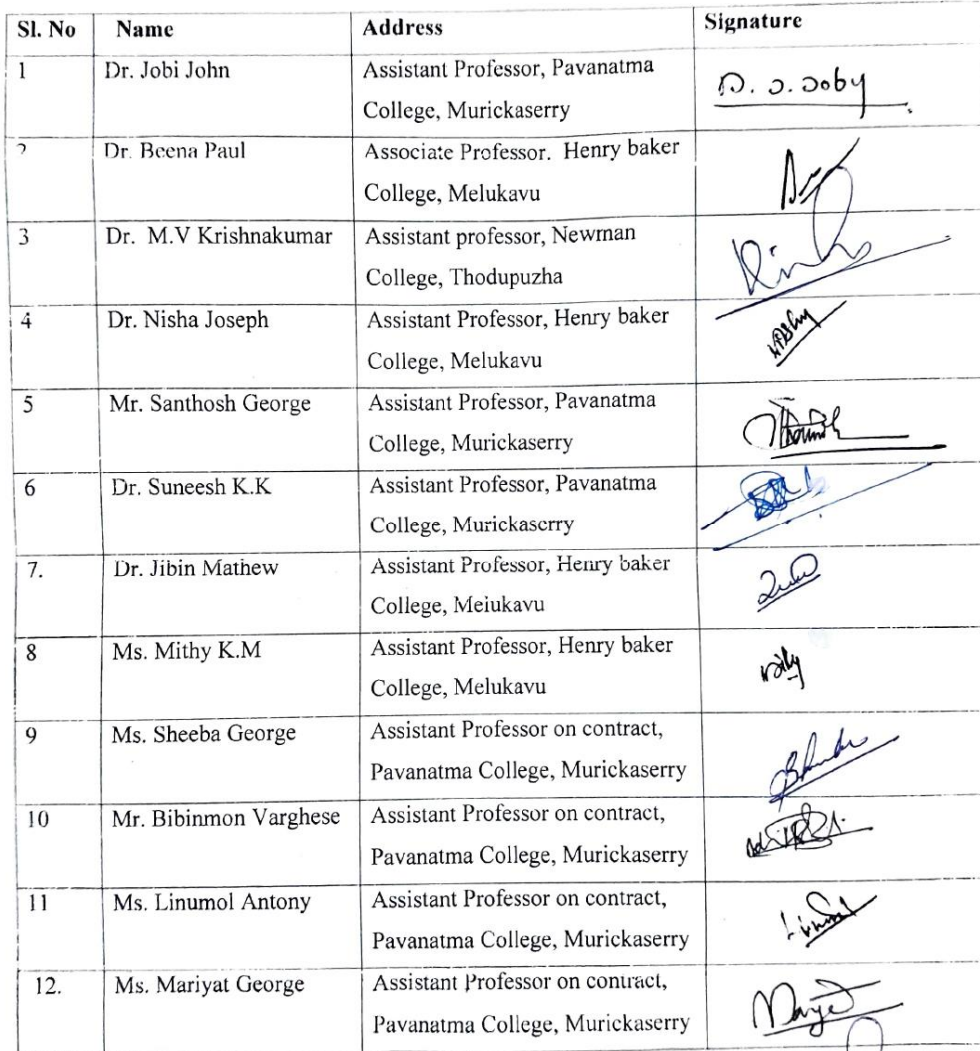 Sl. No Name Address Signature
1 Dr. Jobi John Assistant Professor, Pavanatma
College, Murickaserry
2 Dr. Beena Paul Associate Professor. Henry baker
College, Melukavu
3 Dr. M.V Krishnakumar Assistant professor, Newman
College, Thodupuzha
4 Dr. Nisha Joseph Assistant Professor, Henry baker
College, Melukavu
5 Mr. Santhosh George Assistant Professor, Pavanatma
College, Murickaserry
6 Dr. Suneesh K.K Assistant Professor, Pavanatma
College, Murickaserry
7. Dr. Jibin Mathew Assistant Professor, Henry baker
College, Melukavu
8 Ms. Mithy K.M Assistant Professor, Henry baker
College, Melukavu
9 Ms. Sheeba George Assistant Professor on contract,
Pavanatma College, Murickaserry
10 Mr. Bibinmon Varghese Assistant Professor on contract,
Pavanatma College, Murickaserry
11 Ms. Linumol Antony Assistant Professor on contract,
Pavanatma College, Murickaserry
12. Ms. Mariyat George Assistant Professor on contract,
Pavanatma College, Murickaserry